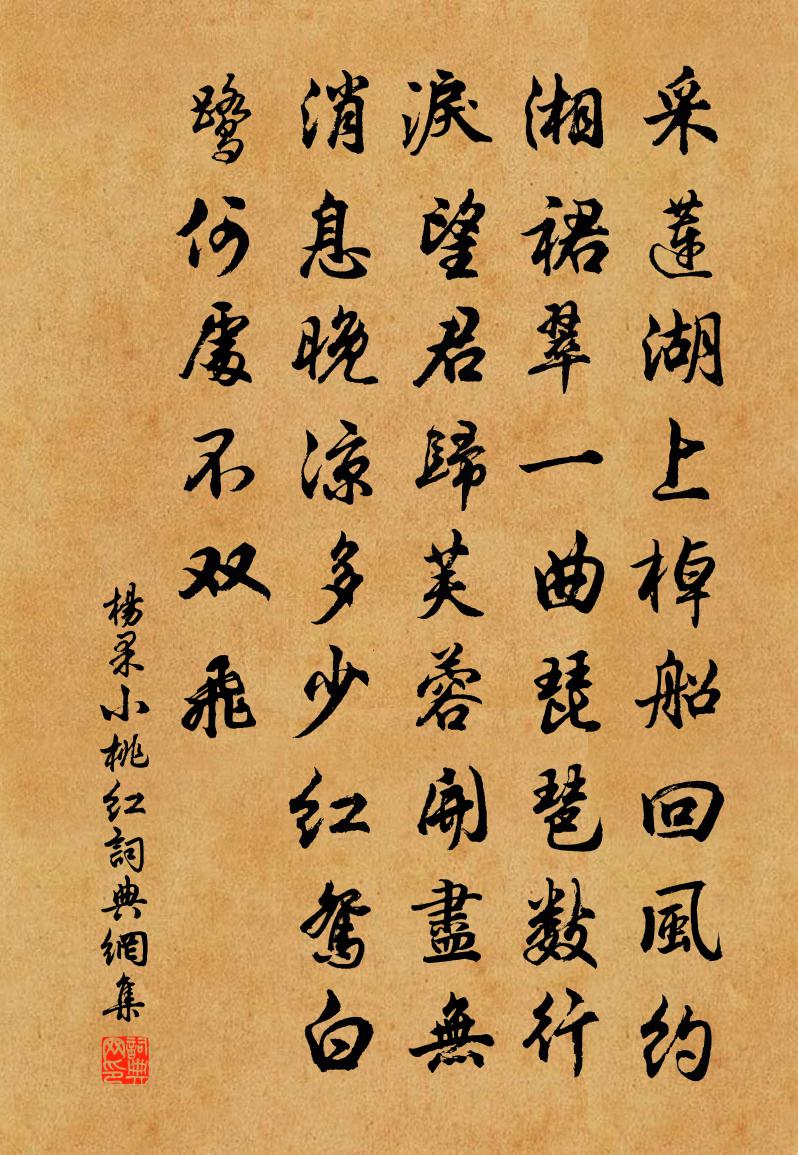 采蓮湖上棹船回風约
湘裙翠一曲琵琶数行
淚望君歸芙蓉開盡無
消息晚凉多少红鴛白
鷺何處不双飛
楊果小桃红詞典網集
詞典网印